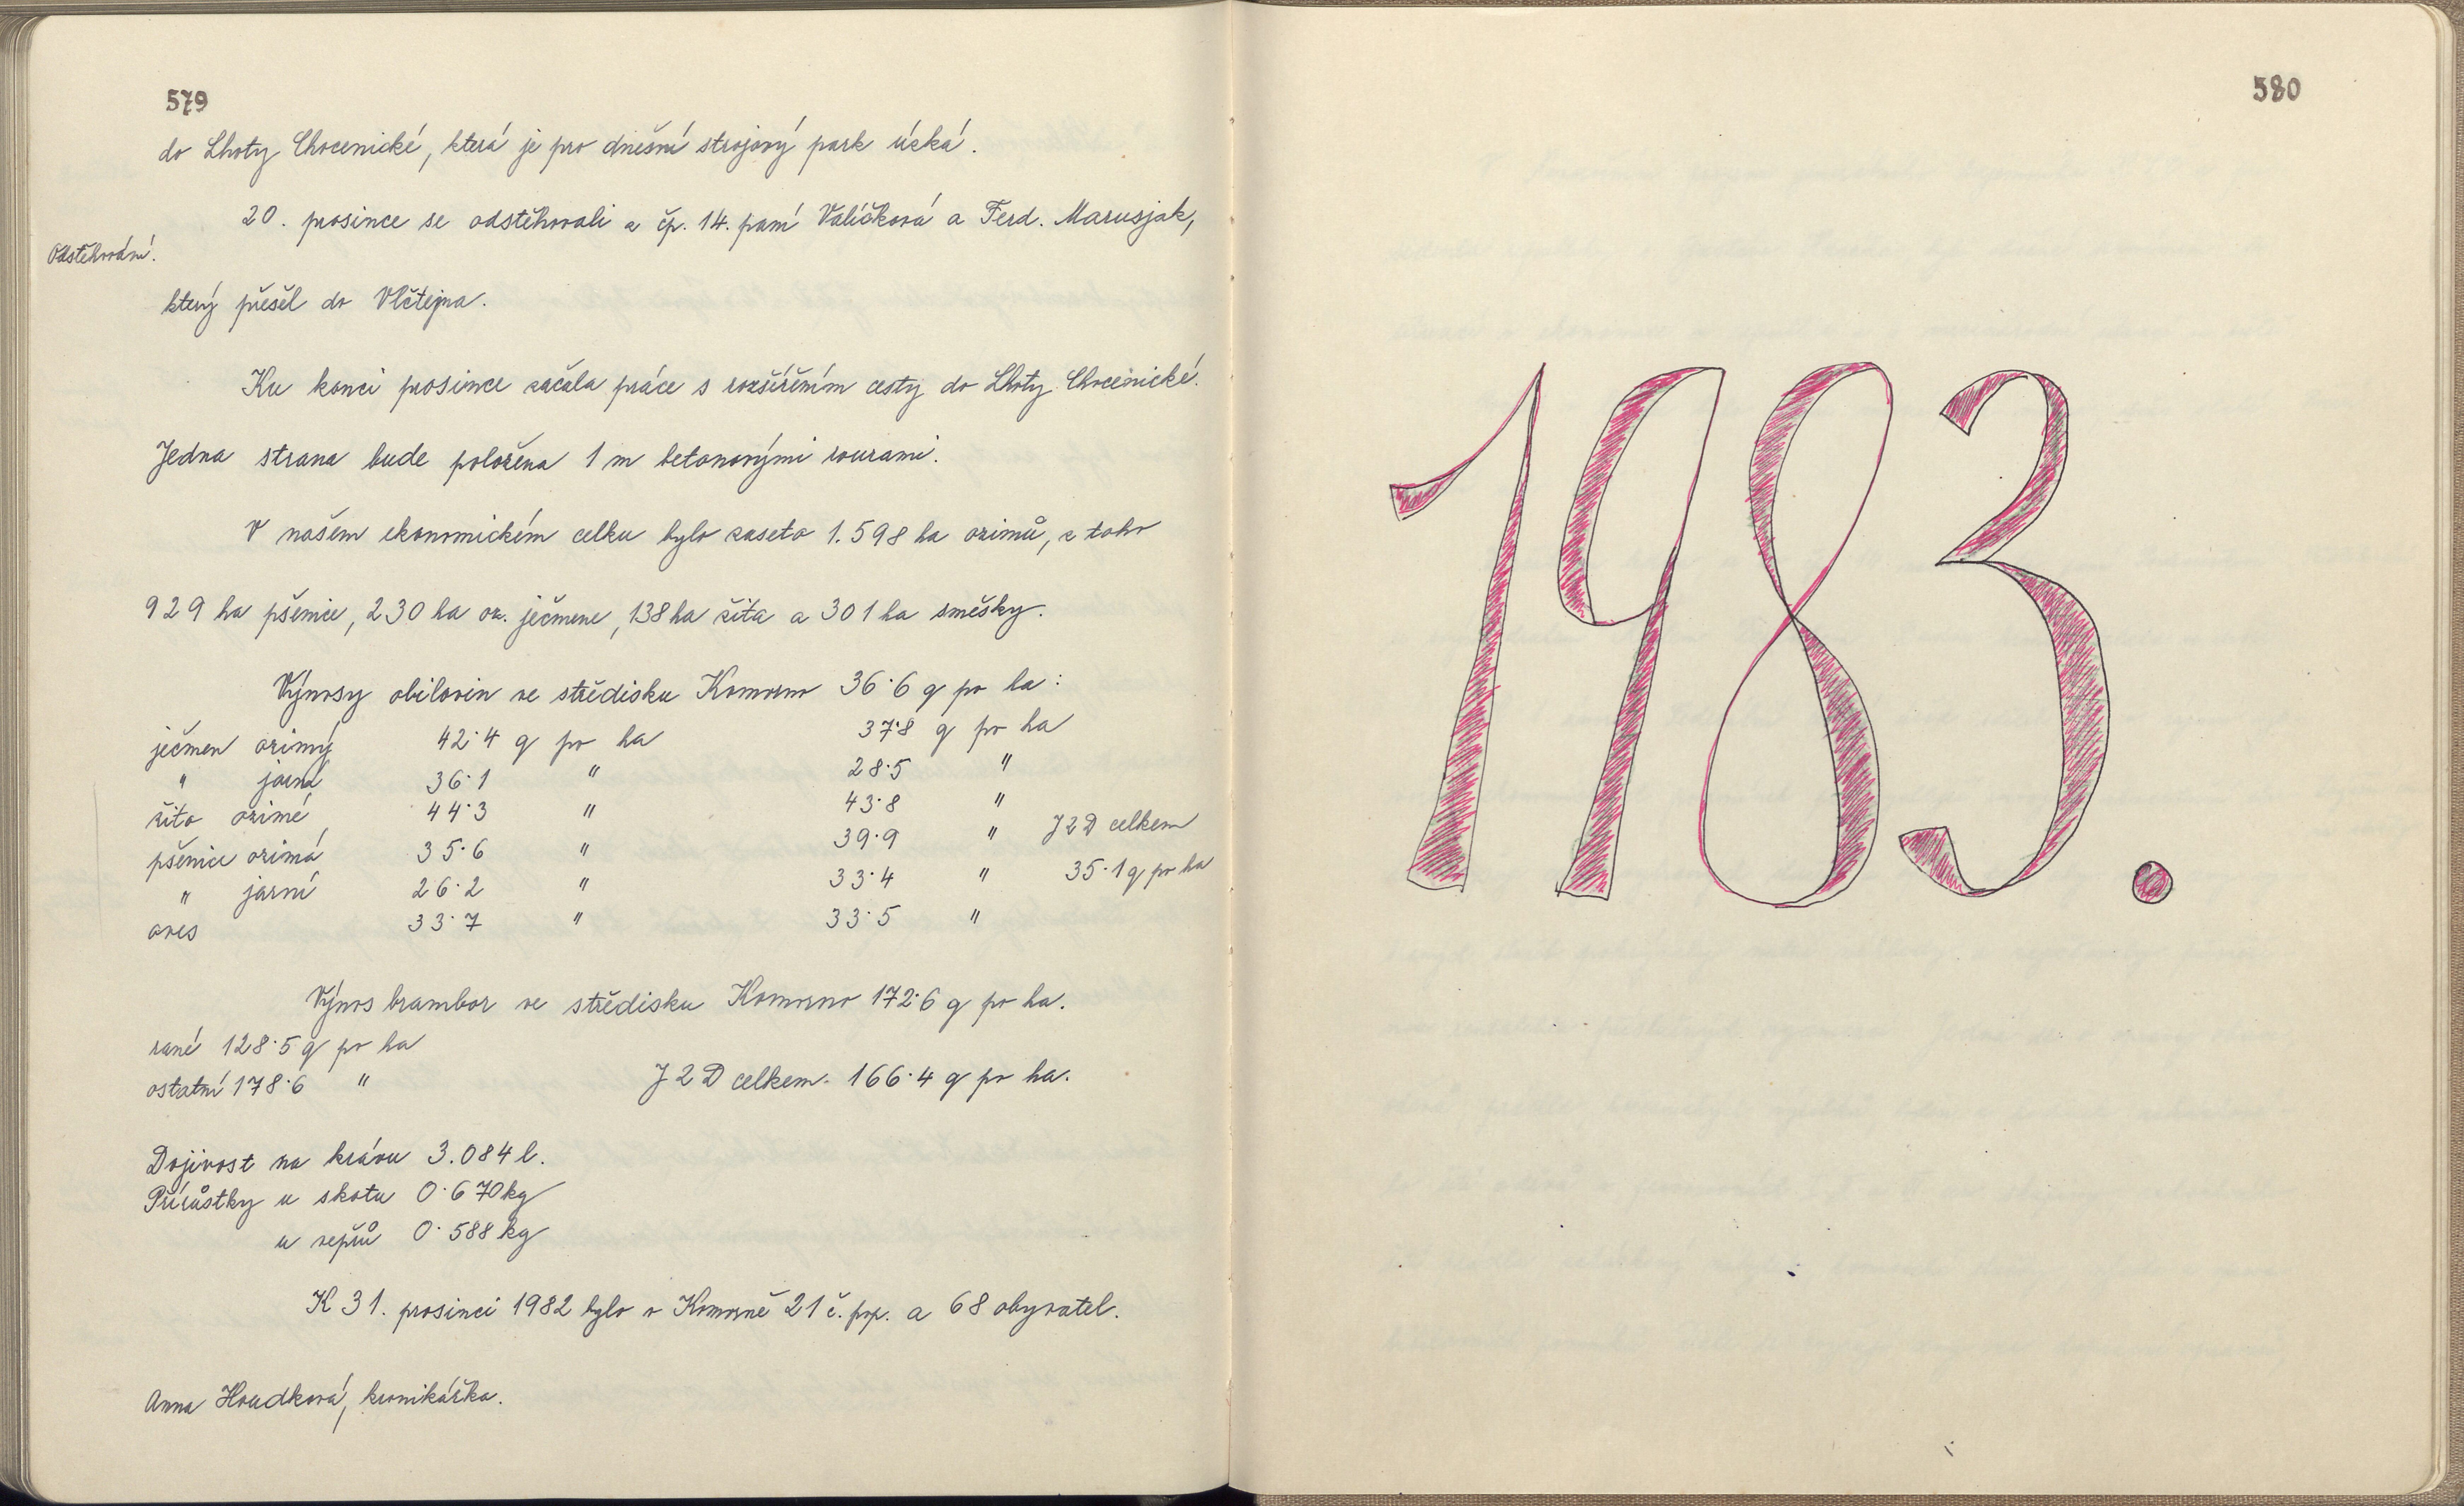 579
do Lhoty Chocenické, která je pro dnešní strojový park úzká.
20. prosince se odstěhovali z čp. 14. paní Valíčková a Ferd. Marusjak,
Odstěhování.
který přešel do Vlčtejna.
Ku konci prosince začala práce s rozšířením cesty do Lhoty Chocenické.
Jedna strana bude položena 1 m betonovými rourami.
V našem ekonomickém celku bylo zaseto 1.598 ha ozimů, z toho
929 ha pšenice, 230 ha oz. ječmene, 138 ha žita a 301 ha směsky.
Výnosy obilovin ve středisku Komorno 36·6 q po ha:
ječmen ozimý 42·4 q po ha 37·8 q po ha
" jarní 36·1 " 28·5 "
žito ozimé 44·3 " 43·8 "
pšenice ozimá 35·6 " 39·9 " JZD celkem
" jarní 26·2 " 33·4 " 35·1 q po ha
oves 33·7 " 33·5 "
Výnos brambor ve středisku Komorno 172·6 q po ha.
rané 128·5 q po ha
ostatní 178·6 " JZD celkem 166·4 q po ha.
Dojivost na krávu 3.084 l.
Přírůstky u skotu 0·670 kg
u vepřů 0·588 kg
K 31. prosinci 1982 bylo v Komorně 21 č. pop. a 68 obyvatel.
Anna Houdková, kronikářka.
580
1983.